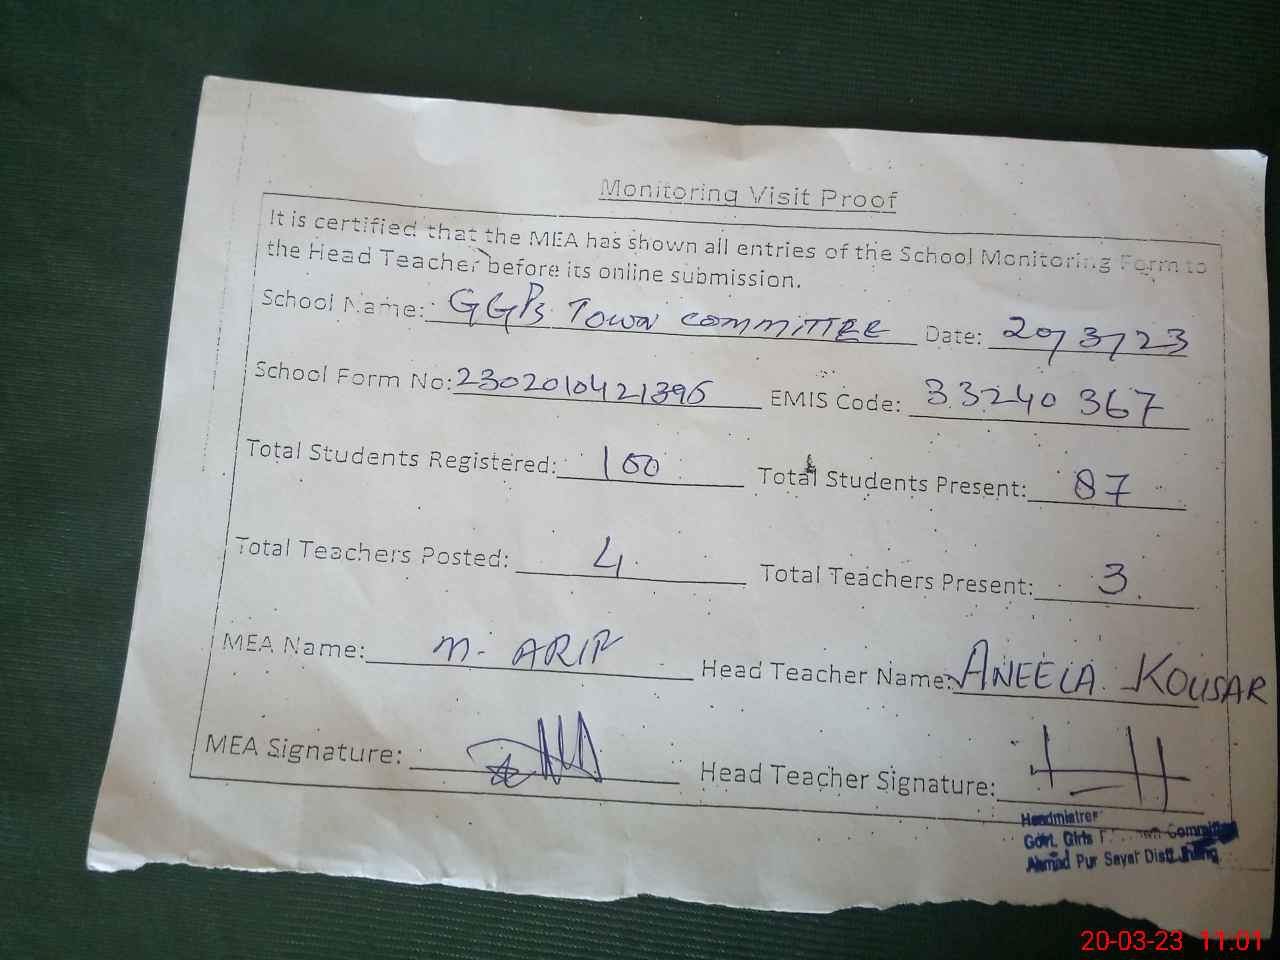 Monitoring Visit Proof
It is certified that the MEA has shown all entries of the School Monitoring Form to
the Head Teacher before its online submission.
School Name: GGPS TOWN COMMITTEE Date: 20/3/23
School Form No: 2302010421396 EMIS Code: 33240367
Total Students Registered: 100 Total Students Present: 87
Total Teachers Posted: 4 Total Teachers Present: 3
MEA Name: M. ARIF Head Teacher Name: ANEELA KOUSAR
MEA Signature: Head Teacher Signature:
Headmistres
Govt. Girls Committee
Ahmad Pur Sayal Distt. Jhang
20-03-23 11:01